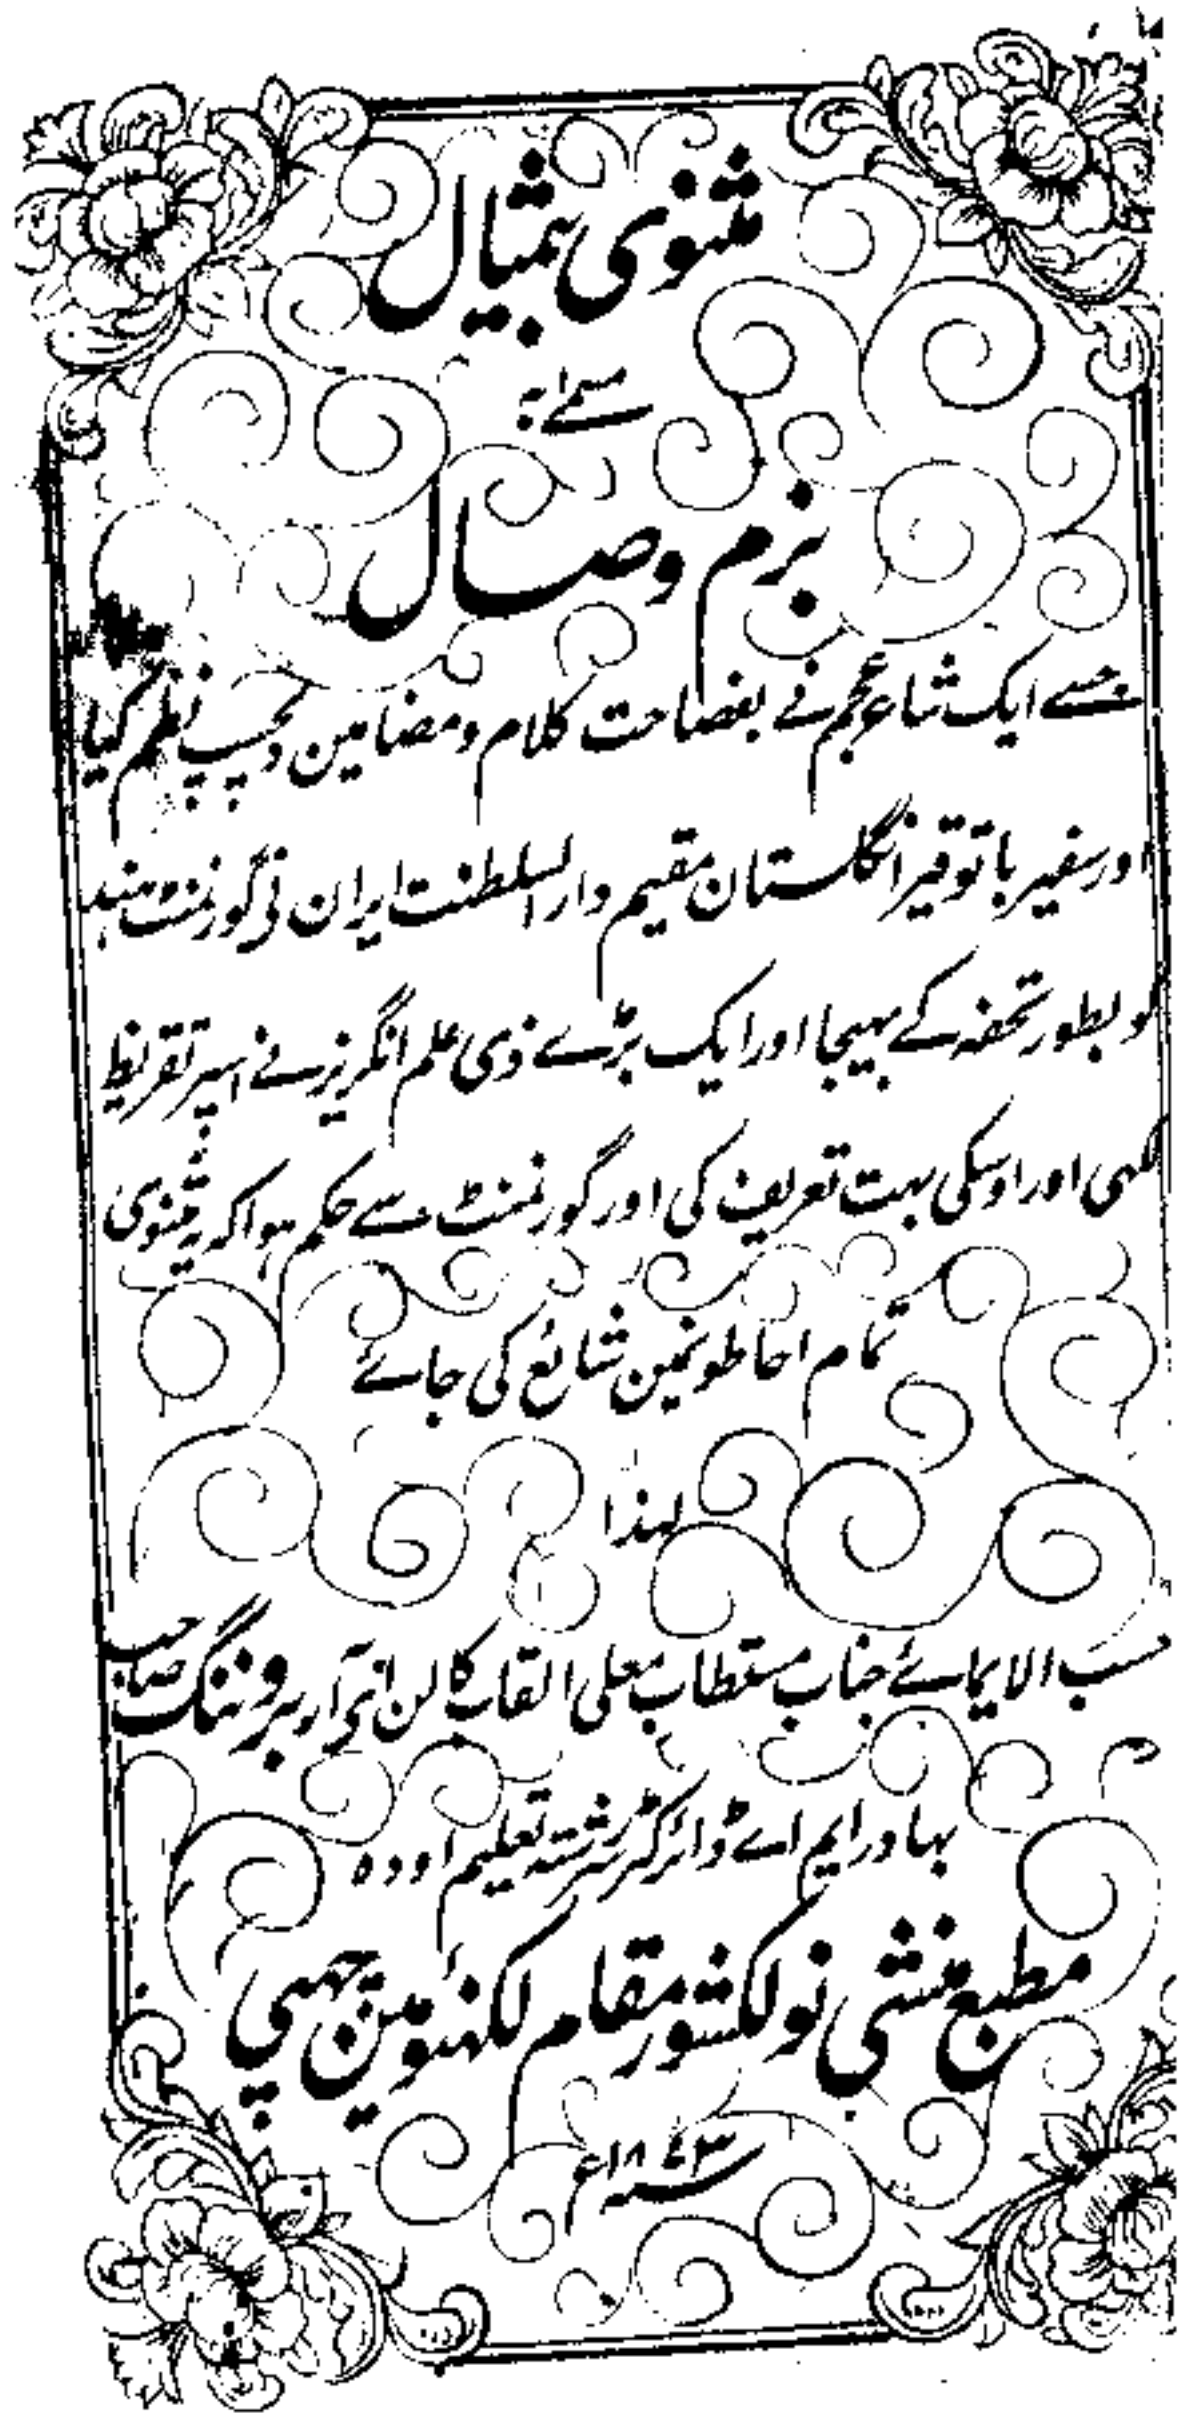 مثنوی بیمثال
مسمے بہ
بزم وصال
جسے ایک شاعر عجم نے بفصاحت کلام و مضامین دلچسپ نظم کیا
اور سفیر باتوقیر انگلستان مقیم دارالسلطنت ایران نی گورنمنٹ ہند
کو بطور تحفہ کے بہیجا اور ایک بڑے ذی علم انگریز نے اسپر تقریظ
لکہی اور اوسکی بہت تعریف کی اور گورنمنٹ سے حکم ہوا کہ یہ مثنوی
تمام احاطونمین شائع کی جائے
لہذا
حسب الایمائے جناب مستطاب معلی القاب کالن ای آر بروننگ صاحب
بہادر ایم اے ڈائرکٹر سررشتہ تعلیم اودہ
مطبع منشی نولکشور مقام لکہنؤ مین چہپی
سنہ ۱۸۷۳ء